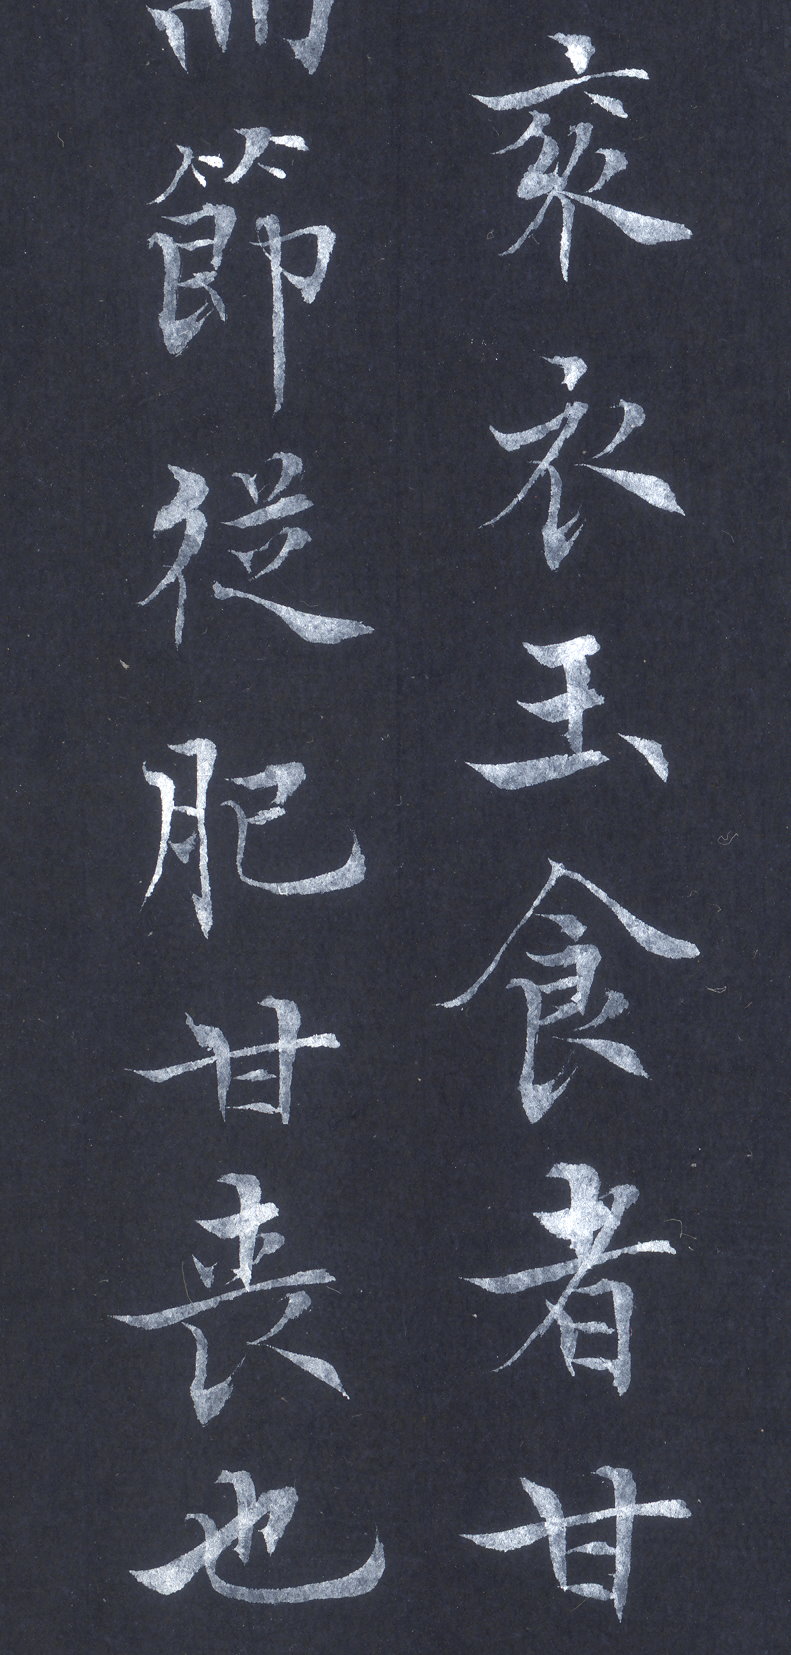 衣玉食者甘
節從肥甘喪也